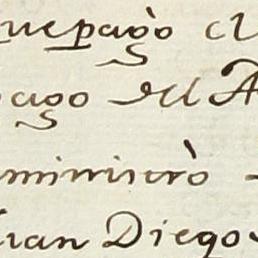 que pagò el
pago del A
ministrò
Juan Diego